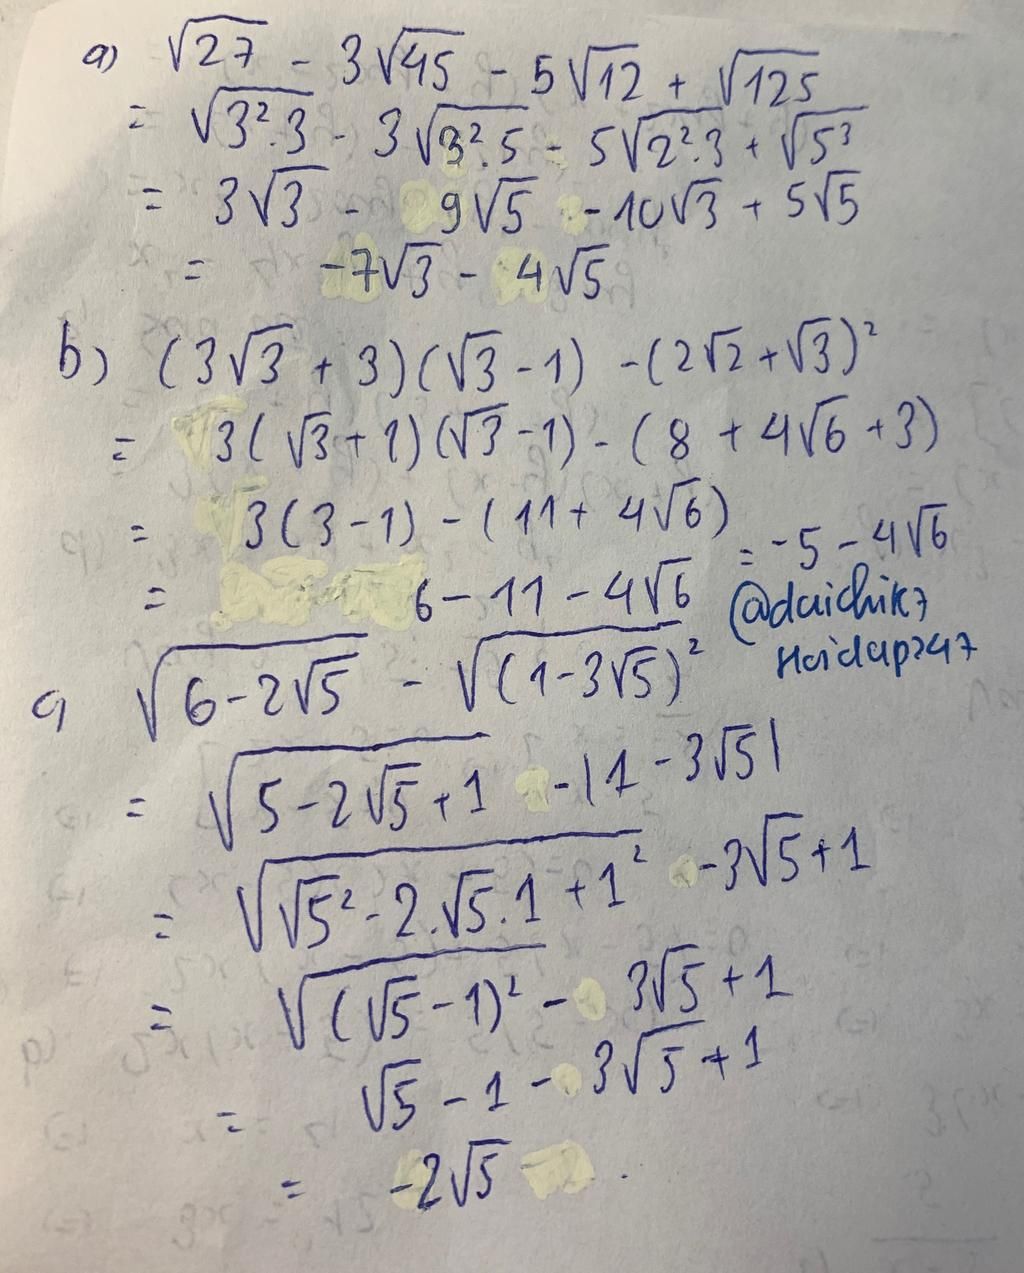 a) √27 - 3√45 - 5√12 + √125
= √3².3 - 3√3².5 - 5√2².3 + √5³
= 3√3 - 9√5 - 10√3 + 5√5
= -7√3 - 4√5
b) (3√3 + 3)(√3 - 1) - (2√2 + √3)²
= 3(√3 + 1)(√3 - 1) - (8 + 4√6 + 3)
= 3(3 - 1) - (11 + 4√6)
= 6 - 11 - 4√6 = -5 - 4√6
@daichik7
Hoidap247
c) √6 - 2√5 - √(1 - 3√5)²
= √5 - 2√5 + 1 - |1 - 3√5|
= √√5² - 2.√5.1 + 1² - 3√5 + 1
= √(√5 - 1)² - 3√5 + 1
= √5 - 1 - 3√5 + 1
= -2√5